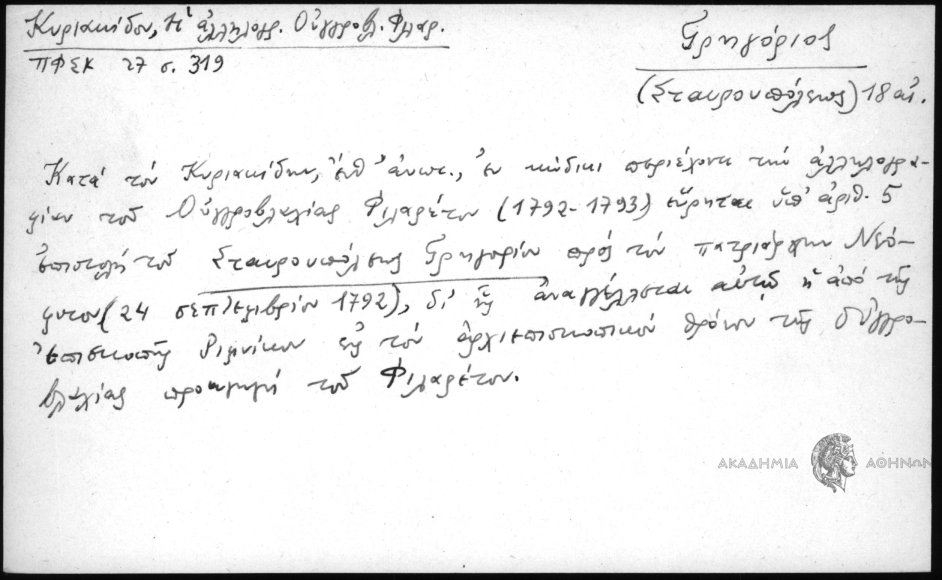 Κυριακίδου, Ἡ ἀλληλογρ. Οὐγγροβλ. Φιλαρ.
ΠΦΣΚ 27 σ. 319
Γρηγόριος
(Σταυρουπόλεως) 18 αἰ.
Κατά τόν Κυριακίδην, ἔνθ' ἀνωτ., ἐν κώδικι περιέχοντι τήν ἀλληλογρα-
φίαν τοῦ Οὐγγροβλαχίας Φιλαρέτου (1792-1793) εὕρηται ὑπ' ἀριθ. 5
ἐπιστολή τοῦ Σταυρουπόλεως Γρηγορίου πρός τόν πατριάρχην Νεό-
φυτον (24 σεπτεμβρίου 1792), δι' ἧς ἀναγγέλλεται αὐτῷ ἡ ἀπό τῆς
ἐπισκοπῆς Ριμνίκου εἰς τόν ἀρχιεπισκοπικόν θρόνον τῆς Οὐγγρο-
βλαχίας προαγωγή τοῦ Φιλαρέτου.
ΑΚΑΔΗΜΙΑ ΑΘΗΝΩΝ